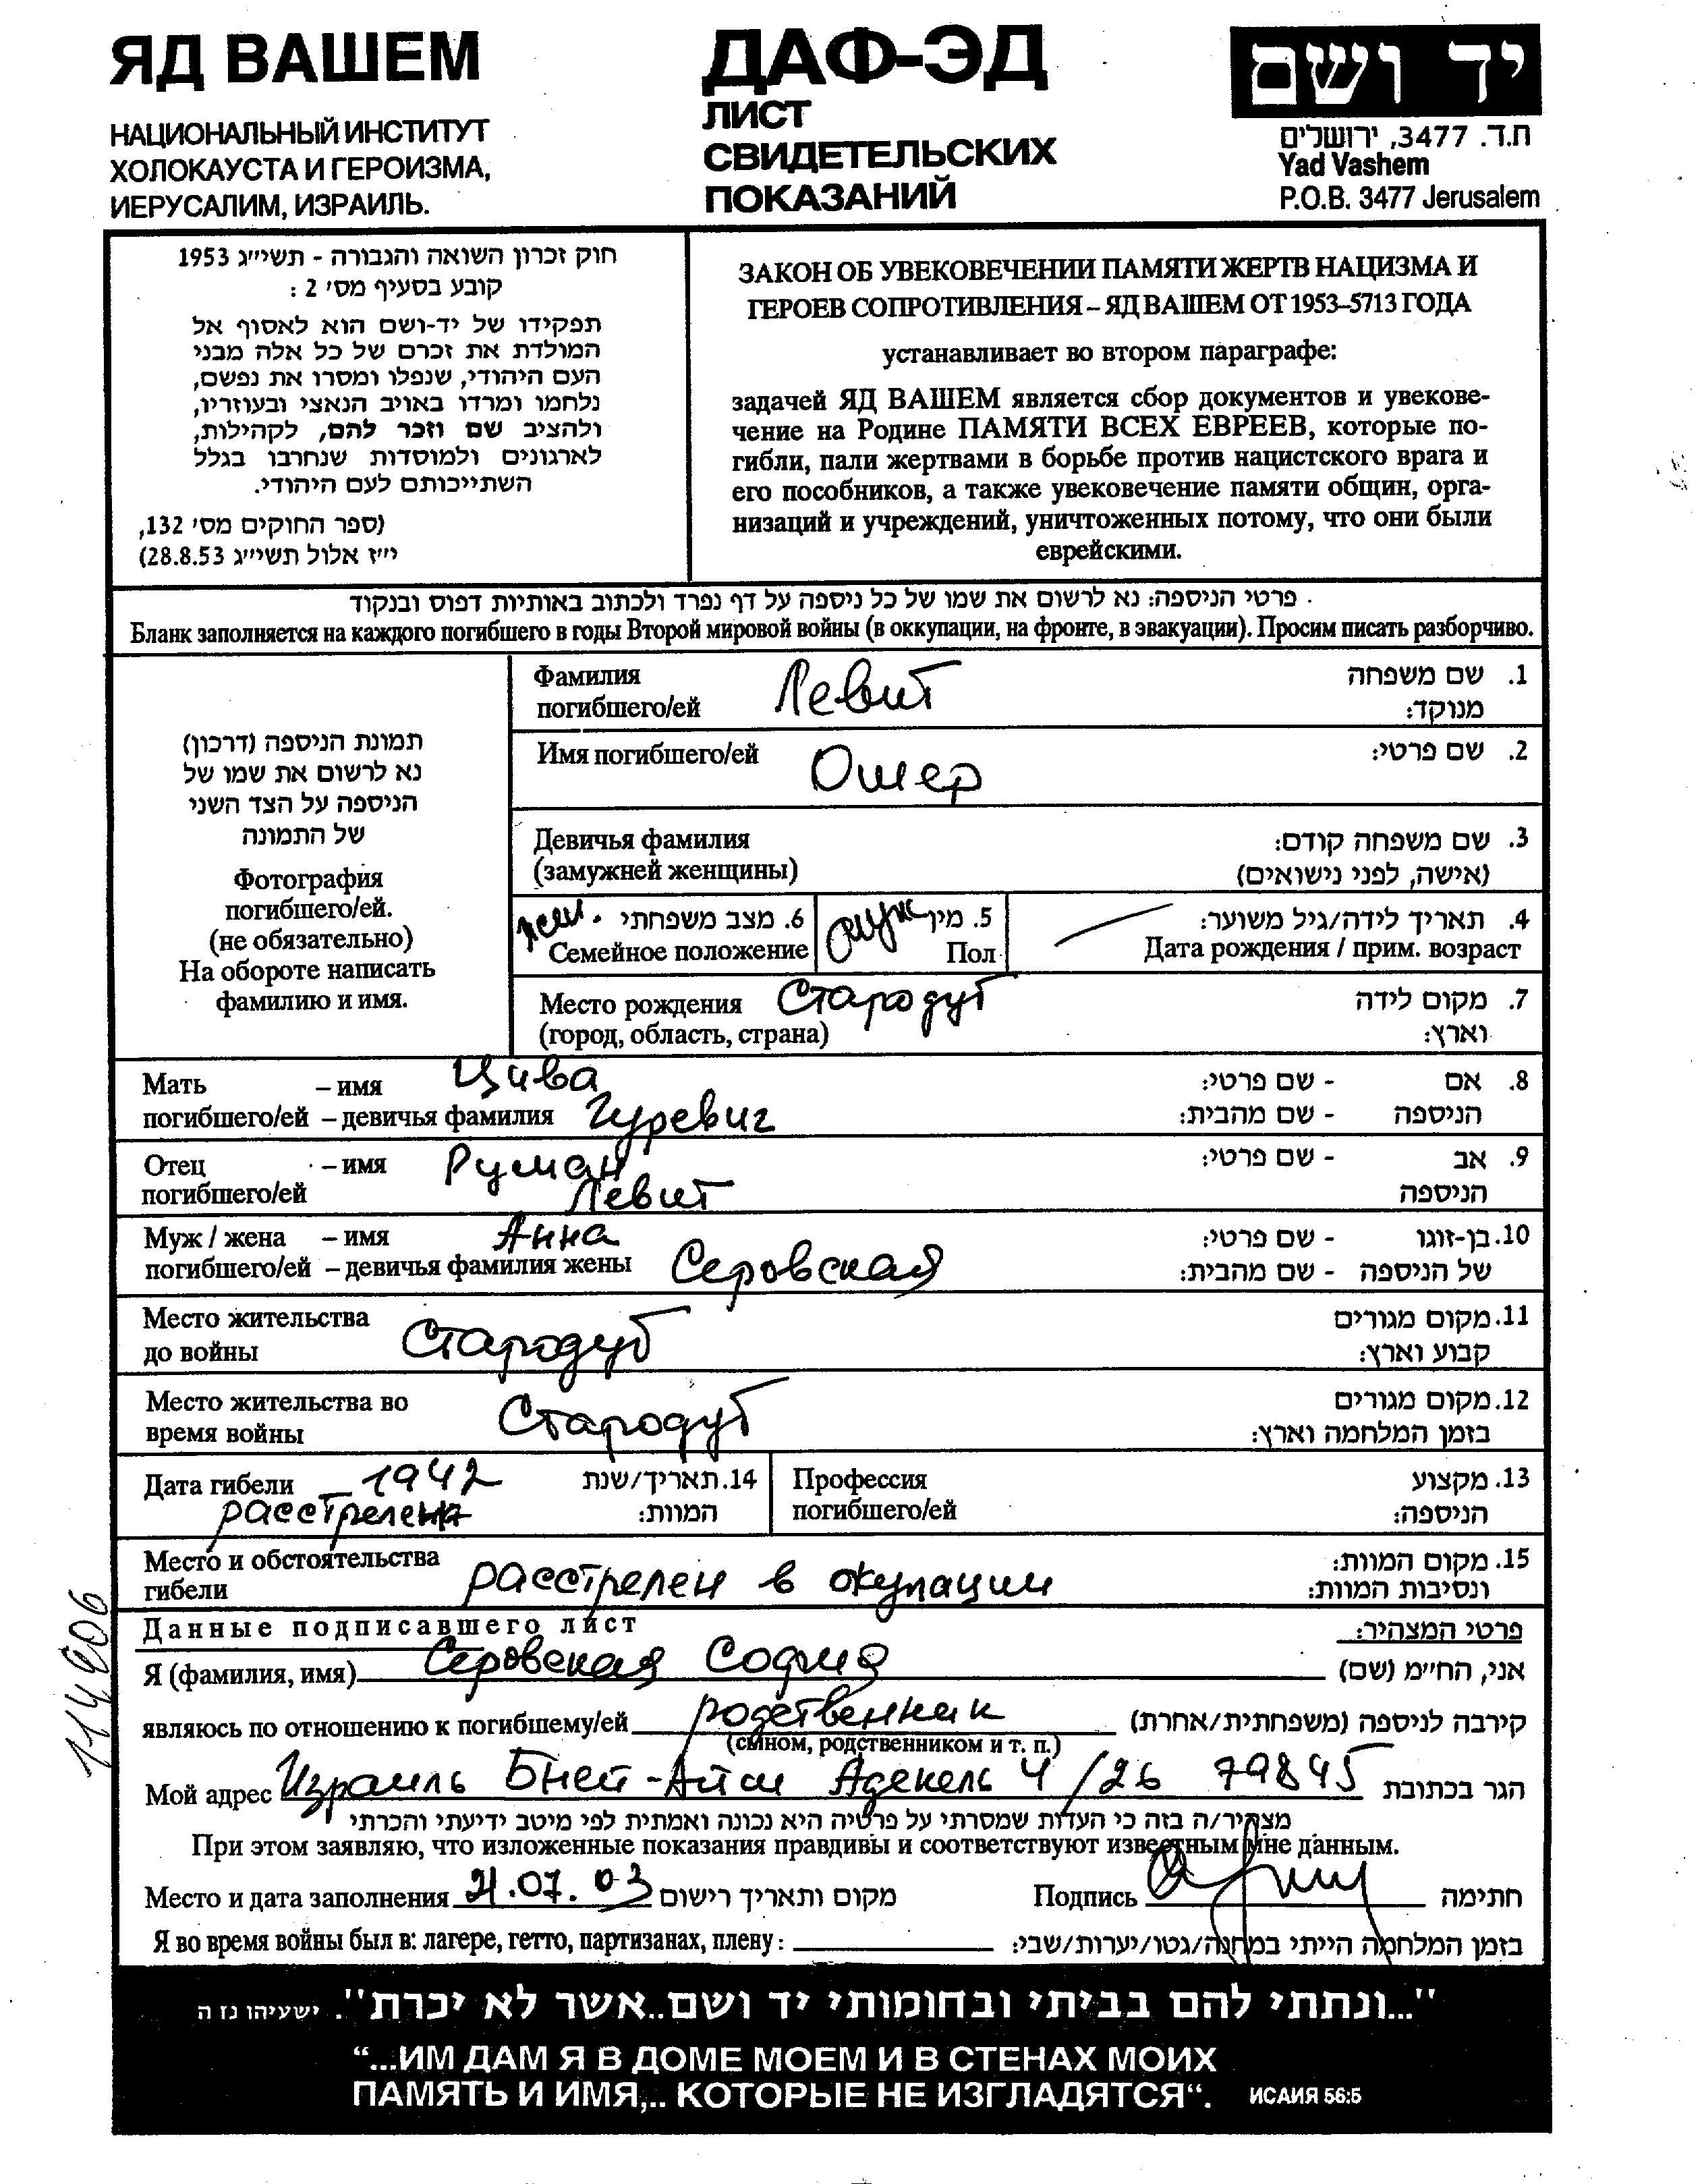 ЯД ВАШЕМ
НАЦИОНАЛЬНЫЙ ИНСТИТУТ
ХОЛОКАУСТА И ГЕРОИЗМА,
ИЕРУСАЛИМ, ИЗРАИЛЬ.
ДАФ-ЭД
ЛИСТ
СВИДЕТЕЛЬСКИХ
ПОКАЗАНИЙ
יד ושם
ת.ד. 3477, ירושלים
Yad Vashem
P.O.B. 3477 Jerusalem
חוק זכרון השואה והגבורה - תשי״ג 1953
קובע בסעיף מס׳ 2 :
תפקידו של יד-ושם הוא לאסוף אל
המולדת את זכרם של כל אלה מבני
העם היהודי, שנפלו ומסרו את נפשם,
נלחמו ומרדו באויב הנאצי ובעוזריו,
ולהציב שם וזכר להם, לקהילות,
לארגונים ולמוסדות שנחרבו בגלל
השתייכותם לעם היהודי.
(ספר החוקים מס׳ 132,
י״ז אלול תשי״ג 28.8.53)
ЗАКОН ОБ УВЕКОВЕЧЕНИИ ПАМЯТИ ЖЕРТВ НАЦИЗМА И
ГЕРОЕВ СОПРОТИВЛЕНИЯ – ЯД ВАШЕМ ОТ 1953–5713 ГОДА
устанавливает во втором параграфе:
задачей ЯД ВАШЕМ является сбор документов и увекове-
чение на Родине ПАМЯТИ ВСЕХ ЕВРЕЕВ, которые по-
гибли, пали жертвами в борьбе против нацистского врага и
его пособников, а также увековечение памяти общин, орга-
низаций и учреждений, уничтоженных потому, что они были
еврейскими.
פרטי הניספה: נא לרשום את שמו של כל ניספה על דף נפרד ולכתוב באותיות דפוס ובנקוד
Бланк заполняется на каждого погибшего в годы Второй мировой войны (в оккупации, на фронте, в эвакуации). Просим писать разборчиво.
תמונת הניספה (דרכון)
נא לרשום את שמו של
הניספה על הצד השני
של התמונה
Фотография
погибшего/ей.
(не обязательно)
На обороте написать
фамилию и имя.
Фамилия Левит 1. שם משפחה
погибшего/ей מנוקד:
Имя погибшего/ей Ошер 2. שם פרטי:
Девичья фамилия 3. שם משפחה קודם:
(замужней женщины) (אישה, לפני נישואים)
жен. 6. מצב משפחתי муж 5. מין 4. תאריך לידה/גיל משוער:
Семейное положение Пол Дата рождения / прим. возраст
Место рождения Стародуб 7. מקום לידה
(город, область, страна) וארץ:
Мать – имя Цива 8. אם - שם פרטי:
погибшего/ей – девичья фамилия Гуревич הניספה - שם מהבית:
Отец – имя Руман 9. אב - שם פרטי:
погибшего/ей Левит הניספה
Муж / жена – имя Анна 10. בן-זוגו - שם פרטי:
погибшего/ей – девичья фамилия жены Серовская של הניספה - שם מהבית:
Место жительства Стародуб 11. מקום מגורים
до войны קבוע וארץ:
Место жительства во Стародуб 12. מקום מגורים
время войны בזמן המלחמה וארץ:
Дата гибели 1942 14. תאריך/שנת Профессия 13. מקצוע
расстрелена המוות: погибшего/ей הניספה:
Место и обстоятельства 15. מקום המוות:
гибели расстрелен в окупации ונסיבות המוות:
Данные подписавшего лист פרטי המצהיר:
Я (фамилия, имя) Серовская София אני, הח״מ (שם)
являюсь по отношению к погибшему/ей родственник קירבה לניספה (משפחתית/אחרת)
(сыном, родственником и т. п.)
Мой адрес Израиль Бней-Айш Адекель 4/26 79845 הגר בכתובת
מצהיר/ה בזה כי העדות שמסרתי על פרטיה היא נכונה ואמתית לפי מיטב ידיעתי והכרתי
При этом заявляю, что изложенные показания правдивы и соответствуют известным мне данным.
Место и дата заполнения 21.07.03 מקום ותאריך רישום Подпись חתימה
Я во время войны был в: лагере, гетто, партизанах, плену : בזמן המלחמה הייתי במחנה/גטו/יערות/שבי:
114906
"...ונתתי להם בביתי ובחומותי יד ושם..אשר לא יכרת". ישעיהו נז ה
“...ИМ ДАМ Я В ДОМЕ МОЕМ И В СТЕНАХ МОИХ
ПАМЯТЬ И ИМЯ,.. КОТОРЫЕ НЕ ИЗГЛАДЯТСЯ“. ИСАИЯ 56:5